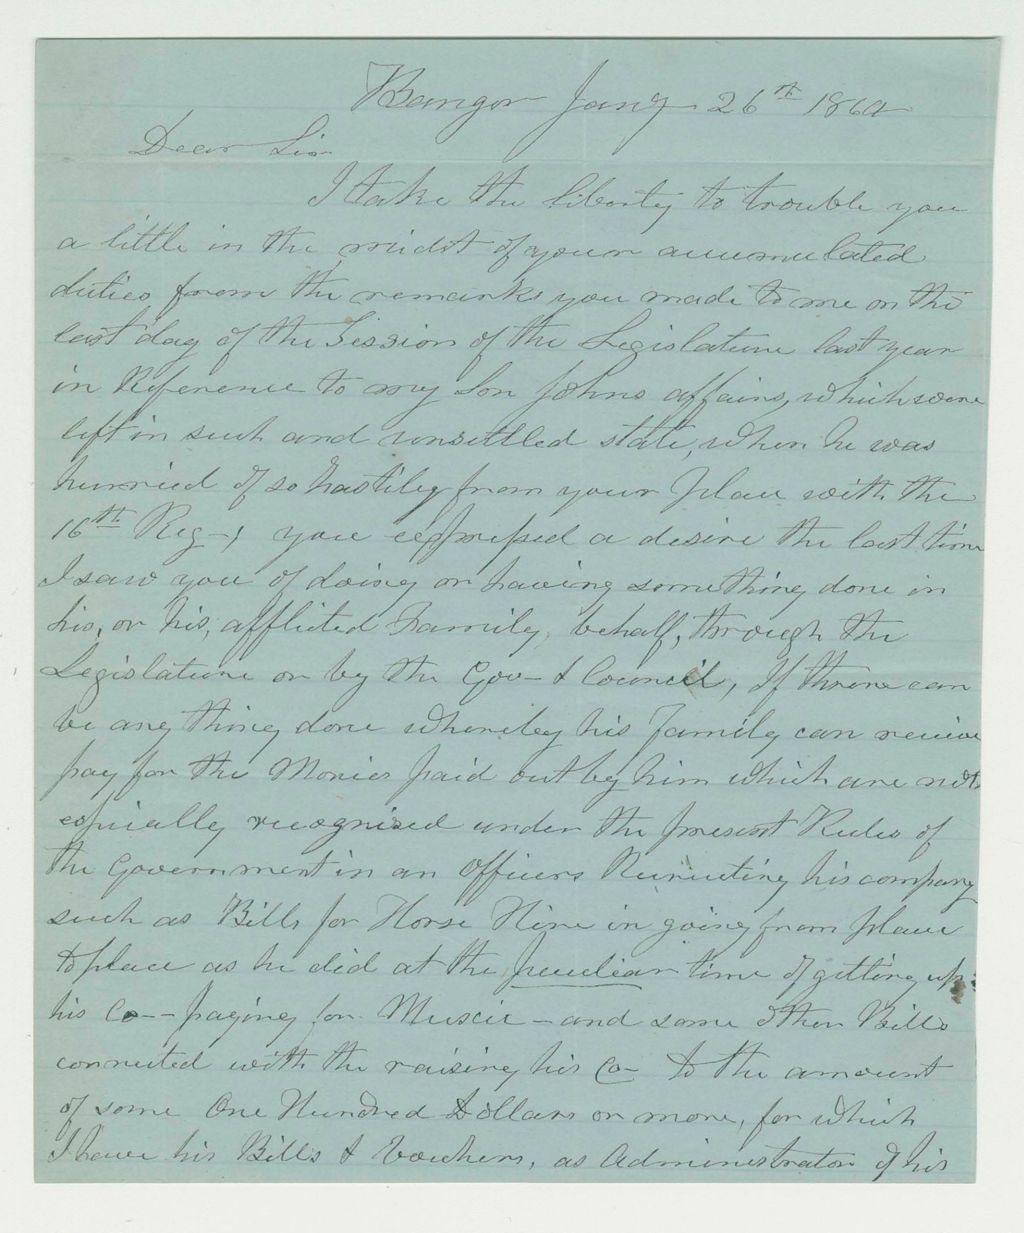 Bangor Jany 26th 1864
Dear Sir
I take the liberty to trouble you
a little in the midst of your accumulated
duties from the remarks you made to me on the
last day of the Session of the Legislature last year
in Reference to my Son Johns affairs, which were
left in such and unsettled state, when he was
hurried of so hastiley from your place with the
16th Reg-, you expressed a desire the last time
I saw you of doing or having something done in
his, or his, afflicted Family, behalf, through the
Legislature or by the Gov- & Council, If there can
be any thing done whereby his Family can receive
pay for the Monies paid out by him which are not
especially recognised under the present Rules of
the Government in an officers Recruiting his company
such as Bills for Horse Hire in going from place
to place as he did at the peculiar time of getting up
his Co-- paying for Music - and some other Bills
connected with the raising his Co- to the amount
of some One Hundred Dollars or more, for which
I have his Bills & Vouchers, as Administrator of his